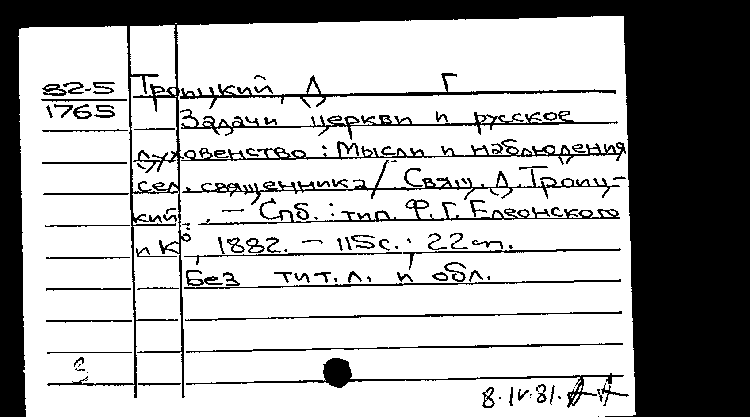 82-5 Троицкий, Д Г
1765
Задачи церкви и русское
духовенство: Мысли и наблюдения
сел. священника/ Свящ. Д. Троиц-
кий. - Спб.: тип. Ф.Г. Елеонского
и К°, 1882. - 115с.; 22см.
Без тит. л. и обл.
3
8.IV.81.